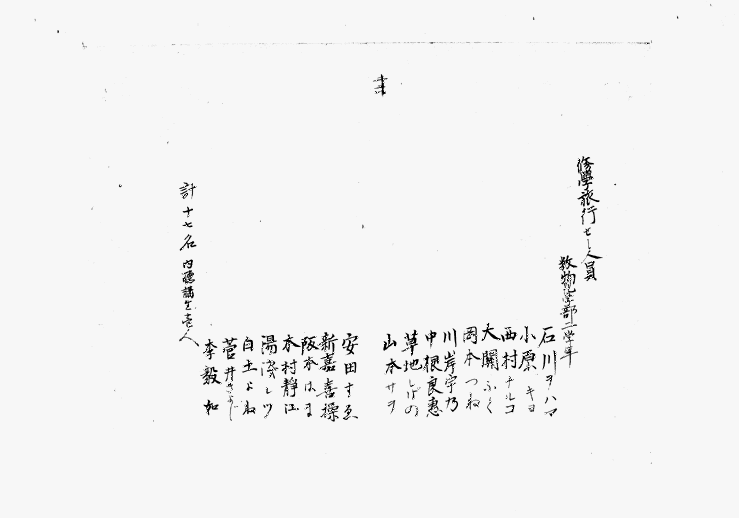 修學旅行セシ人員
数物化学部二学年
石川ヲハマ
小原キヨ
西村ナルコ
大關ふく
岡本つね
川岸宇乃
中根良惠
草地しげの
山本サヲ
安田すゑ
新嘉喜操
阪本はま
木村靜江
湯淺レツ
白土よね
菅井
李毅如
計十七名 内聽講生壱人